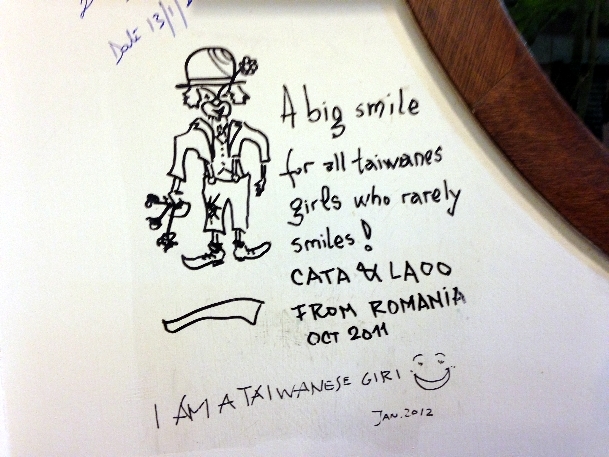 Date 13/1/
A big smile
for all taiwanes
girls who rarely
smiles!
CATA & LAOO
FROM ROMANIA
OCT 2011
I AM A TAIWANESE GIRl
JAN. 2012